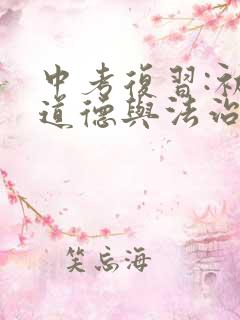 中考復習:初
道德與法治
笑忘海